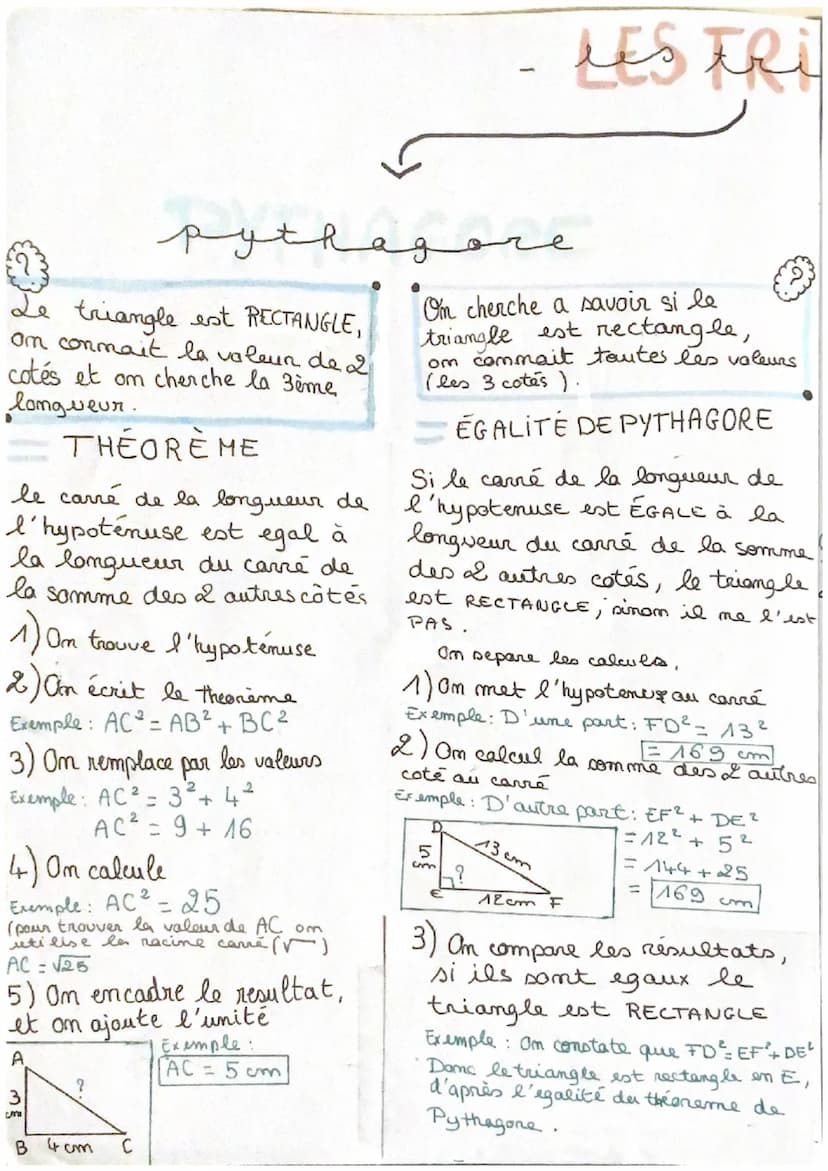 - les tri
LES TRi
pythagore
PYTHAGORE
?
Le triangle est RECTANGLE,
on connait la valeur de 2
cotés et on cherche la 3ème
longueur.
= THÉORÈME
le carré de la longueur de
l'hypoténuse est egal à
la longueur du carré de
la somme des 2 autres côtés
1) On trouve l'hypoténuse
2) On écrit le theorème
Exemple : AC² = AB² + BC²
3) On remplace par les valeurs
Exemple : AC² = 3² + 4²
AC² = 9 + 16
4) On calcule
Exemple : AC² = 25
(pour trouver la valeur de AC on
utilise la racine carré (√‾)
AC = √25
5) On encadre le resultat,
et on ajoute l'unité
Exemple :
AC = 5 cm
A
?
3
cm
B 4 cm C
?
On cherche a savoir si le
triangle est rectangle,
on connait toutes les valeurs
(les 3 cotés).
= ÉGALITÉ DE PYTHAGORE
Si le carré de la longueur de
l'hypotenuse est ÉGALE à la
longueur du carré de la somme
des 2 autres cotés, le triangle
est RECTANGLE, sinon il ne l'est
PAS.
On separe les calculs,
1) On met l'hypotenuse au carré
Exemple : D'une part : FD² = 13²
= 169 cm
2) On calcul la somme des 2 autres
coté au carré
Exemple : D'autre part : EF² + DE²
= 12² + 5²
= 144 + 25
= 169 cm
D
5
cm
13 cm
?
E 12cm F
3) On compare les résultats,
si ils sont egaux le
triangle est RECTANGLE
Exemple : On constate que FD² = EF² + DE²
Donc le triangle est rectangle en E,
d'après l'egalité du théoreme de
Pythagore.